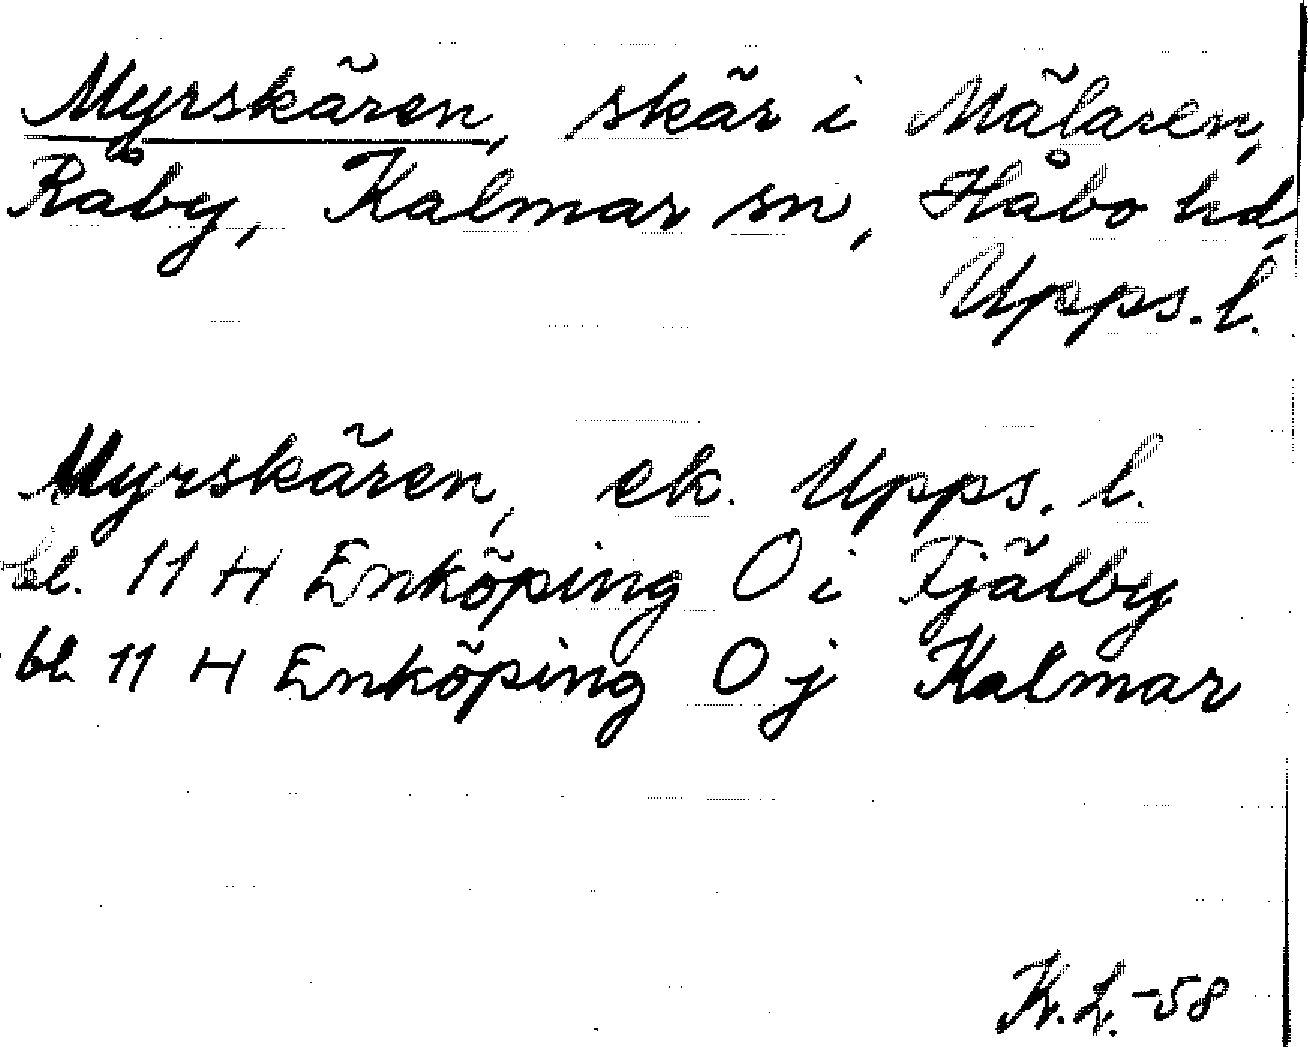 Myrskären, skär i Mälaren,
Råby, Kalmar sn, Håbo hd,
Upps. l.
Myrskären, ek. Upps. l.
bl. 11 H Enköping O i Tjälby
bl. 11 H Enköping O j Kalmar
K. L. -58